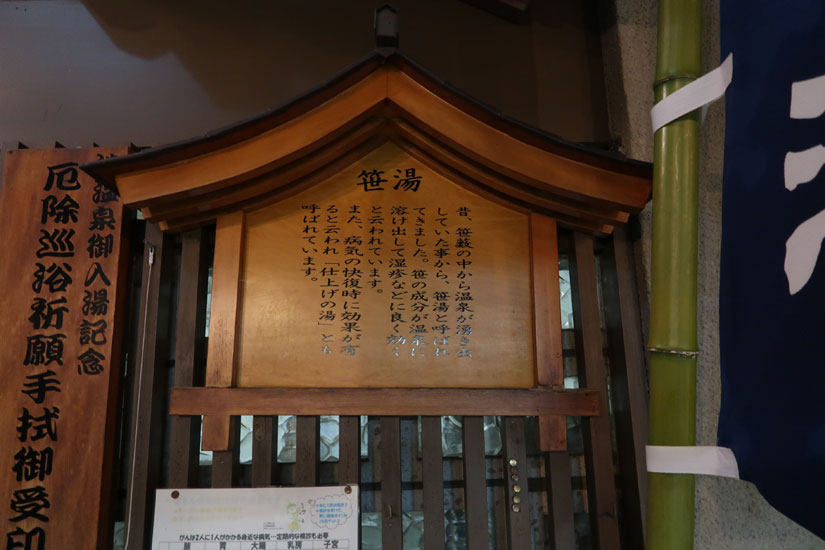 笹湯
昔、笹藪の中から温泉が湧き出
していた事から、笹湯と呼ばれ
てきました。笹の成分が温泉に
溶け出して湿疹などに良く効く
と云われています。
また、病気の快復時に効果が有
ると云われ「仕上げの湯」とも
呼ばれています。
温泉御入湯記念
厄除巡浴祈願手拭御受印
がんは2人に1人がかかる身近な病気…定期的な検診も必要
肺 胃 大腸 乳房 子宮